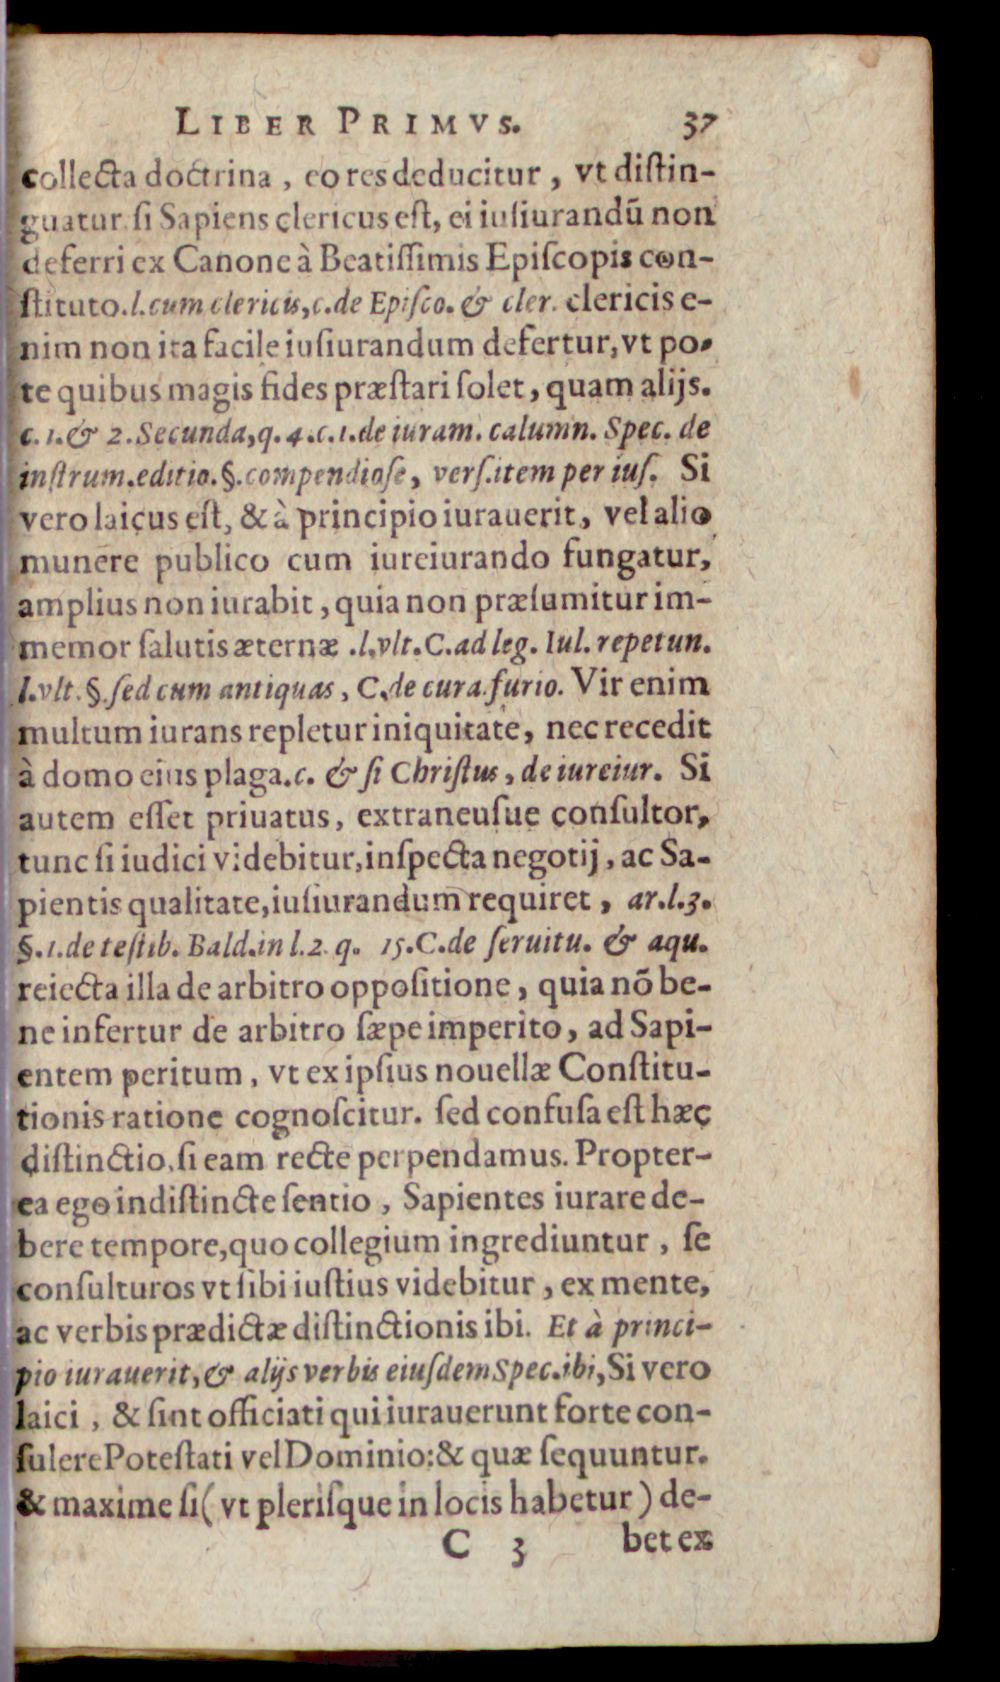 LIBER PRIMVS. 37
collecta doctrina, eo res deducitur, vt distin-
guatur si Sapiens clericus est, ei iusiurandū non
deferri ex Canone à Beatissimis Episcopis con-
stituto. l. cum clericis, c. de Episco. & cler. clericis e-
nim non ita facile iusiurandum defertur, vt po-
te quibus magis fides præstari solet, quam alijs.
c. 1. & 2. Secunda, q. 4. c. 1. de iuram. calumn. Spec. de
instrum. editio. §. compendiose, vers. item per ius. Si
vero laicus est, & à principio iurauerit, vel alio
munere publico cum iureiurando fungatur,
amplius non iurabit, quia non præsumitur im-
memor salutis æternæ. l. vlt. C. ad leg. Iul. repetun.
l. vlt. §. sed cum antiquas, C. de cura. furio. Vir enim
multum iurans repletur iniquitate, nec recedit
à domo eius plaga. c. & si Christus, de iureiur. Si
autem esset priuatus, extraneusue consultor,
tunc si iudici videbitur, inspecta negotij, ac Sa-
pientis qualitate, iusiurandum requiret, ar. l. 3.
§. 1. de testib. Bald. in l. 2. q. 15. C. de seruitu. & aqu.
reiecta illa de arbitro oppositione, quia nō be-
ne infertur de arbitro sæpe imperito, ad Sapi-
entem peritum, vt ex ipsius nouellæ Constitu-
tionis ratione cognoscitur. sed confusa est hæc
distinctio, si eam recte perpendamus. Propter-
ea ego indistincte sentio, Sapientes iurare de-
bere tempore, quo collegium ingrediuntur, se
consulturos vt sibi iustius videbitur, ex mente,
ac verbis prædictæ distinctionis ibi. Et à princi-
pio iurauerit, & alijs verbis eiusdem Spec. ibi, Si vero
laici, & sint officiati qui iurauerunt forte con-
sulere Potestati vel Dominio: & quæ sequuntur.
& maxime si (vt plerisque in locis habetur) de-
C 3 bet ex